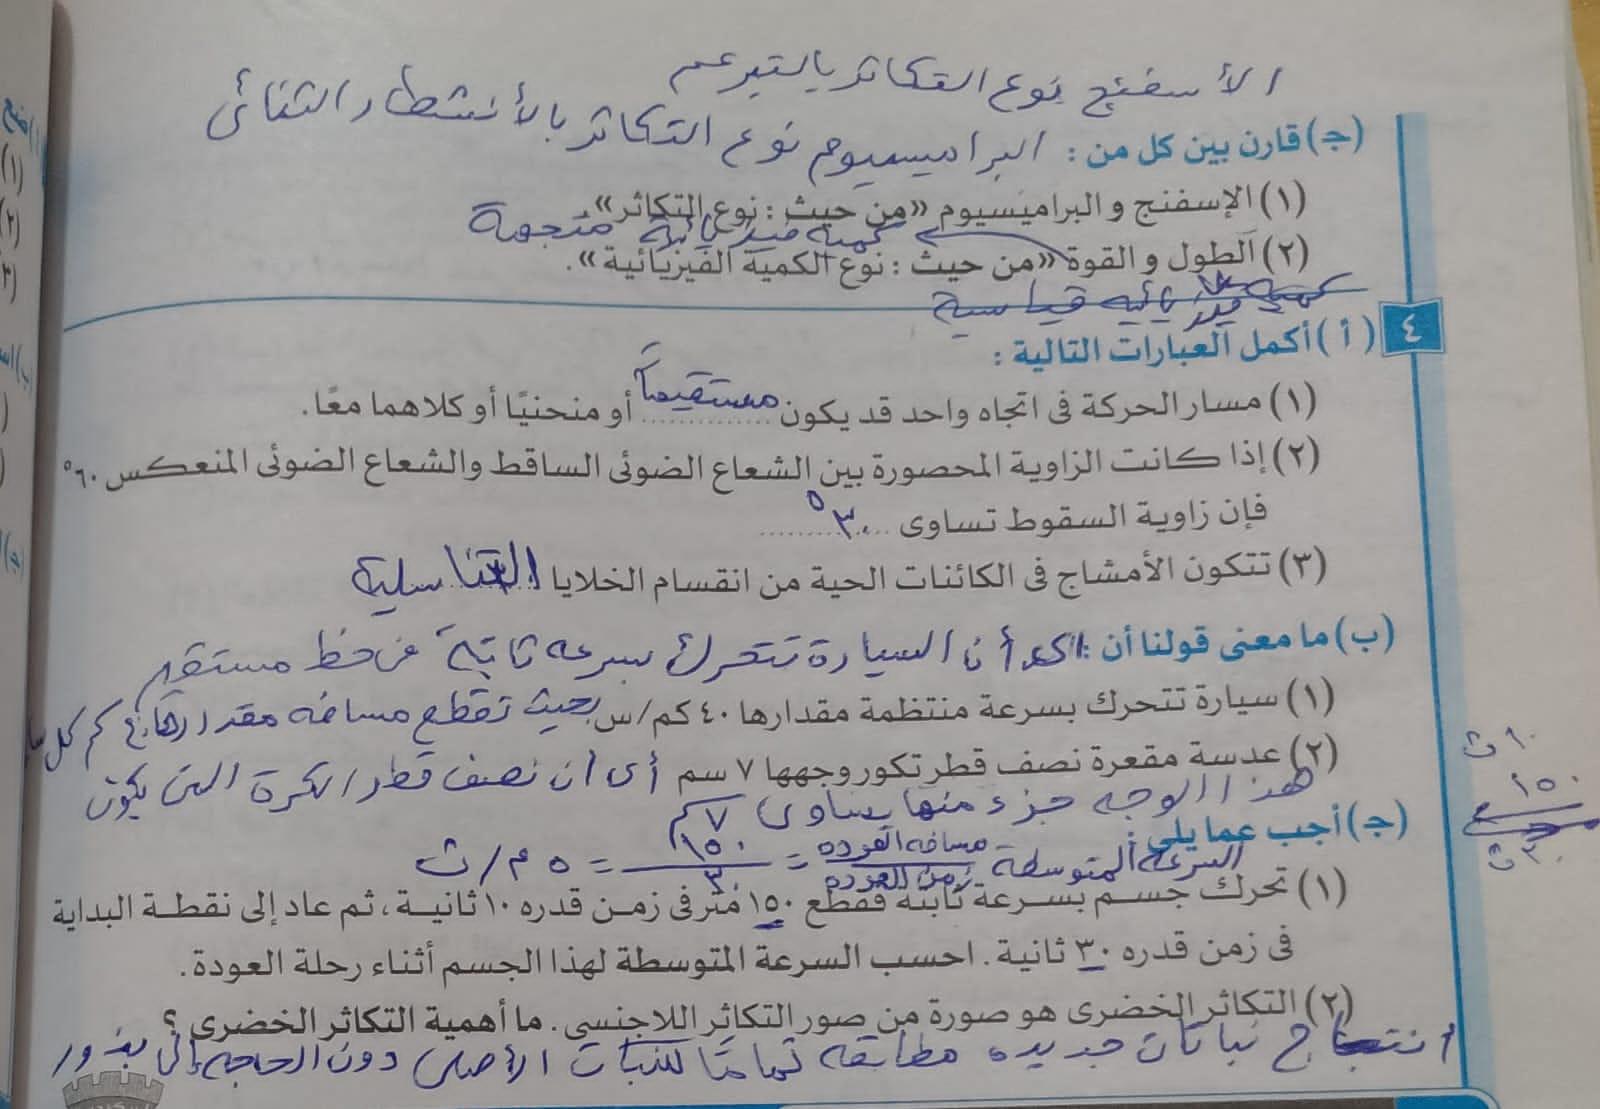 الأسفنج نوع التكاثر بالتبرعم
(جـ) قارن بين كل من : البراميسيوم نوع التكاثر بالأنشطار الثنائى
(١) الإسفنج و البراميسيوم «من حيث : نوع التكاثر».
كمية فيزيائية متجهة
(٢) الطول و القوة «من حيث : نوع الكمية الفيزيائية».
كمية فيزيائيه قياسية
٤ (أ) أكمل العبارات التالية :
(١) مسار الحركة فى اتجاه واحد قد يكون مستقيماً أو منحنيًا أو كلاهما معًا.
(٢) إذا كانت الزاوية المحصورة بين الشعاع الضوئى الساقط والشعاع الضوئى المنعكس ٦٠°
فإن زاوية السقوط تساوى ٣٠°
(٣) تتكون الأمشاج فى الكائنات الحية من انقسام الخلايا التناسلية
(ب) ما معنى قولنا أن : أن السيارة تتحرك بسرعه ثابتة فى خط مستقيم
(١) سيارة تتحرك بسرعة منتظمة مقدارها ٤٠ كم/س بحيث تقطع مسافه مقدارها كم كل
(٢) عدسة مقعرة نصف قطر تكور وجهها ٧ سم أى ان نصف قطر الكرة التى يكون
هذا الوجه جزء منها يساوى ٧
(جـ) أجب عما يلى :
السرعة المتوسطة = مسافه العوده / زمن العوده = ١٥٠ / ٣٠ = ٥ م/ث
١٠ ث
١٥٠
٣٠ ث
(١) تحرك جسم بسرعة ثابتة فقطع ١٥٠ متر فى زمن قدره ١٠ ثانية ، ثم عاد إلى نقطة البداية
فى زمن قدره ٣٠ ثانية . احسب السرعة المتوسطة لهذا الجسم أثناء رحلة العودة.
(٢) التكاثر الخضرى هو صورة من صور التكاثر اللاجنسى . ما أهمية التكاثر الخضرى ؟
انتاج نباتات جديده مطابقه تماما للنبات الأصلى دون الحاجه إلى بذور